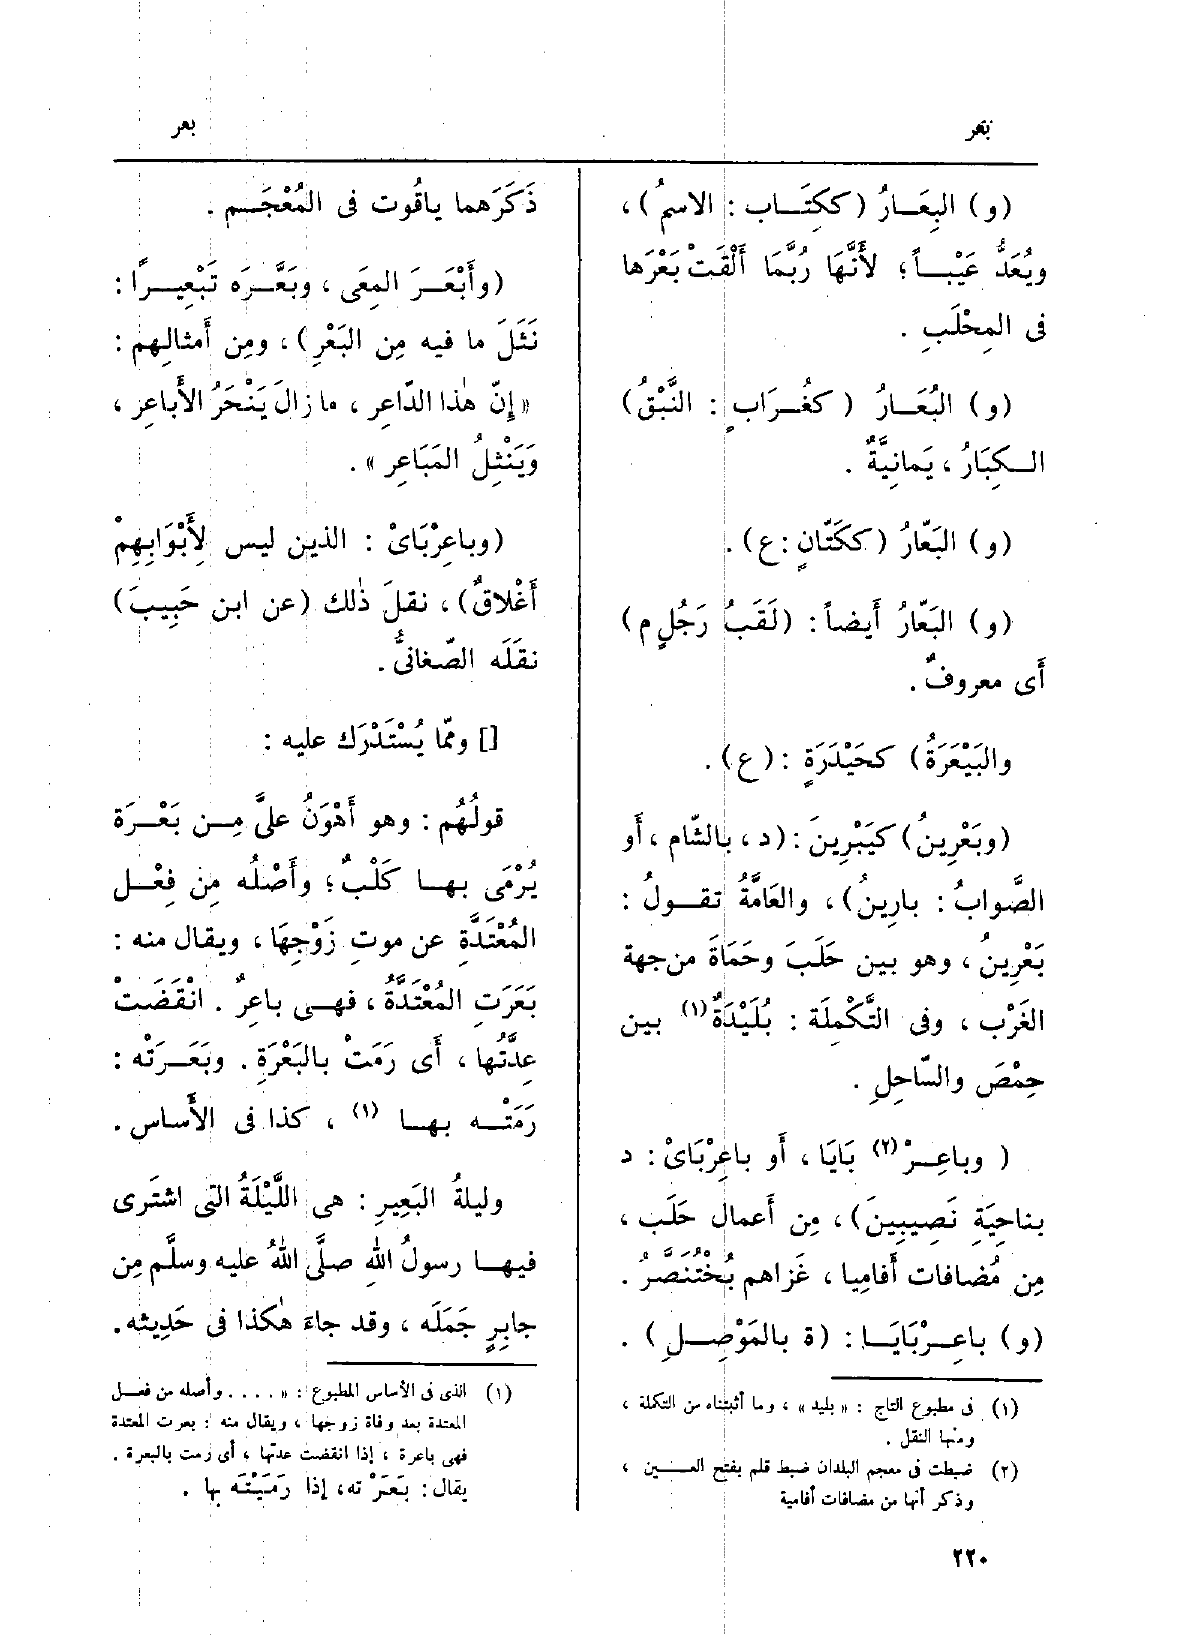 بعر
بعر
(و) البِعَارُ (ككِتَاب : الاسمُ) ،
ويُعَدُّ عَيْباً؛ لأَنَّهَا رُبَّمَا أَلْقَتْ بَعْرَها
فى المِحْلَبِ .
(و) البُعَارُ (كغُرَابٍ : النَّبْقُ)
الكِبَارُ ، يَمانِيَّةٌ .
(و) البَعّارُ (ككَتّانٍ : ع) .
(و) البَعّارُ أَيضاً : (لَقَبُ رَجُلٍ م)
أَى معروفٌ .
والبَيْعَرَةُ) كحَيْدَرَةٍ : (ع) .
(وبَعْرِينُ) كيَبْرِينَ : (د ، بالشّام ، أَو
الصَّوابُ : بارِينُ) ، والعَامَّةُ تقولُ :
بَعْرِينُ ، وهو بين حَلَبَ وحَمَاةَ من جهة
الغَرْب ، وفى التَّكْمِلَة : بُلَيْدَةٌ (١) بين
حِمْصَ والسّاحِلِ .
( وباعِرْ (٢) بَايَا ، أَو باعِرْبَاىْ : د
بناحِيَةِ نَصِيبِينَ) ، مِن أَعمال حَلَب ،
مِن مُضافات أَفامِيا ، غَزاهم بُخْتُنَصَّرُ .
(و) باعِرْبَايَا : (ة بالمَوْصِلِ) .
(١) فى مطبوع التاج : « بليد » ، وما أثبتناه من التكملة ،
ومنها النقل .
(٢) ضبطت فى معجم البلدان ضبط قلم بفتح العين ،
وذكر أنها من مضافات أفامية
ذَكَرَهما ياقُوت فى المُعْجَم .
(وأَبْعَرَ المِعَى ، وبَعَّرَه تَبْعِيرًا :
نَثَلَ ما فيه مِن البَعْرِ) ، ومِن أَمثالِهم :
« إِنّ هٰذا الدّاعِر ، ما زالَ يَنْحَرُ الأَباعِر ،
وَيَنْثِلُ المَبَاعِر » .
(وباعِرْبَاىْ : الذين ليس لِأَبْوَابِهِمْ
أَغْلاقٌ) ، نقلَ ذٰلك (عن ابن حَبِيبَ)
نقَلَه الصّغانىُّ .
[] وممّا يُسْتَدْرَك عليه :
قولُهُم : وهو أَهْوَنُ علىَّ مِن بَعْرَة
يُرْمَى بها كَلْبٌ؛ وأَصْلُه مِن فِعْل
المُعْتَدَّةِ عن موتِ زَوْجِهَا ، ويقال منه :
بَعَرَت المُعْتَدَّةُ ، فهى باعِرٌ . انْقَضَتْ
عِدَّتُها ، أَى رَمَتْ بالبَعْرَةِ . وبَعَرَتْه :
رَمَتْه بها (١) ، كذا فى الأَساس .
وليلةُ البَعِيرِ : هى اللَّيْلَةُ التى اشترَى
فيها رسولُ اللهِ صلَّى اللهُ عليه وسلَّم مِن
جابِرٍ جَمَلَه ، وقد جاءَ هٰكذا فى حَدِيثِه .
(١) الذى فى الأساس المطبوع : « . . . . وأصله من فعل
المعتدة بعد وفاة زوجها ، ويقال منه : بعرت المعتدة
فهى باعرة ، إذا انقضت عدتها ، أى رمت بالبعرة .
يقال : بَعَرْ ته، إذا رَمَيْتَه بها .
٢٢٠